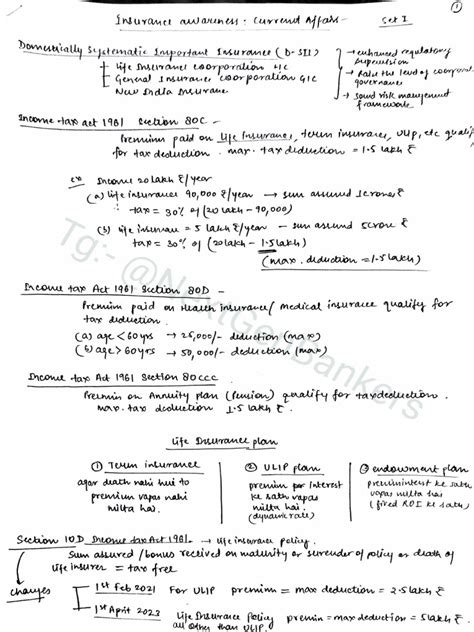 ①
Insurance awareness : Current Affairs - Set I
Domestically Systematic Important Insurance (D-SII)
Life Insurance Coorporation LIC
General Insurance Coorporation GIC
New India Insurance
→ enhanced regulatory supervision
→ Raise the level of corporate governance
→ Sound risk management framework
Income tax act 1961 Section 80C -
Premium paid on Life Insurance, term insurance, Ulip, etc qualify
for tax deduction. max. tax deduction = 1.5 lakh ₹
ex Income 20 lakh ₹/year
(a) life insurance 90,000 ₹/year → sum assured 1 crore ₹
∴ tax = 30% of (20 lakh - 90,000)
(b) life insurance = 5 lakh ₹/year - sum assured 5 crore ₹
tax = 30% of (20 lakh - 1.5 lakh)
(max. deduction = 1.5 lakh)
Income tax Act 1961 Section 80D
Premium paid on Health insurance/ medical insurance qualify for
tax deduction.
(a) age < 60 yrs → 25,000/- deduction (max)
(b) age > 60 yrs → 50,000/- deduction (max)
Income tax Act 1961 Section 80CCC
Premium on Annuity plan (Pension) qualify for tax deduction.
max. tax deduction 1.5 lakh ₹
Life Insurance plan
① Term insurance
agar death nahi hui to
premium vapas nahi
milta hai.
② ULIP plan
premium par Interest
ke sath vapas
milta hai.
(dynamic rate)
③ endowment plan
premium interest ke sath
vapas milta hai
(fixed ROI ke sath)
Section 10D Income tax Act 1961. → life insurance policy.
Sum assured / bonus received on maturity or surrender of policy or death of
life insurer = tax free
changes
1st Feb 2021 For ULIP premium = max deduction = 2.5 lakh ₹
1st April 2023 Life Insurance Policy premium = max deduction = 5 lakh ₹
all other than ULIP.
Tg:- @NextGenBankers